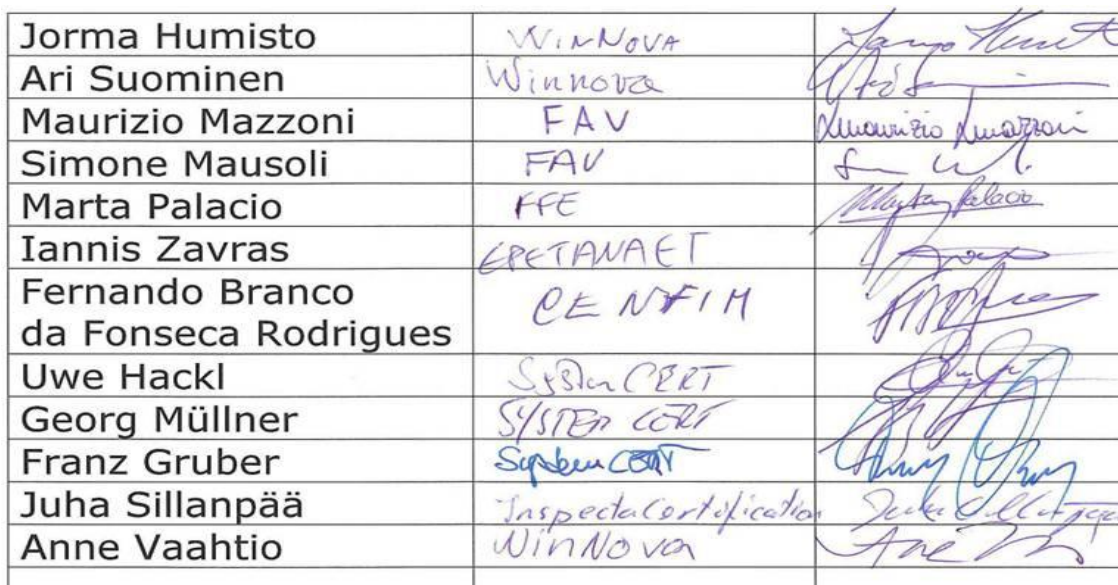 Jorma Humisto WinNova
Ari Suominen Winnova
Maurizio Mazzoni FAV Maurizio Mazzoni
Simone Mausoli FAV
Marta Palacio FFE Marta Palacio
Iannis Zavras EPETANAET
Fernando Branco CENFIM
da Fonseca Rodrigues
Uwe Hackl SystemCERT
Georg Müllner SYSTEM CERT
Franz Gruber SystemCERT
Juha Sillanpää Inspecta Certification
Anne Vaahtio WinNova